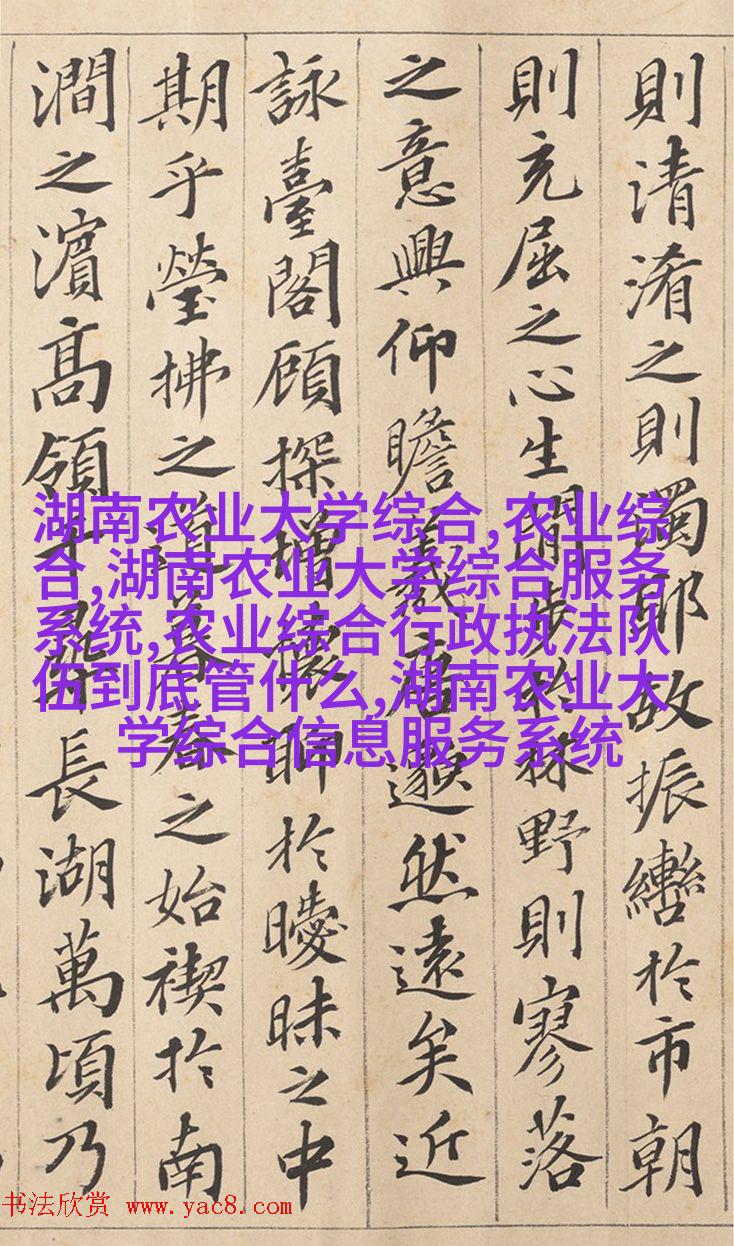 則清淆之則濁邪故振轡於市朝
則充屈之心生閒步於林野則寥落
之意興仰瞻羲唐邈然遠矣近
詠臺閣顧探增懷聊於曖昧之中
期乎瑩拂之道暮春之始禊於南
澗之濱髙領千尋長湖萬頃乃
湖南农业大学综合,农业综
合,湖南农业大学综合服务
系统,农业综合行政执法队
伍到底管什么,湖南农业大
学综合信息服务系统
书法欣赏 www.yac8.com